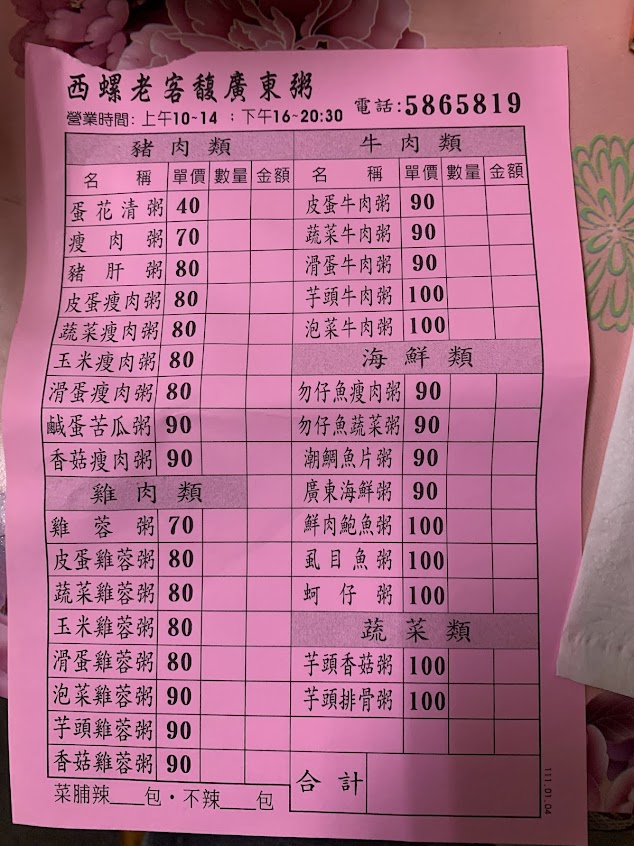 西螺老客馥廣東粥
營業時間: 上午10~14 ；下午16~20:30 電話:5865819
豬肉類
名稱 單價 數量 金額
蛋花清粥 40
瘦肉粥 70
豬肝粥 80
皮蛋瘦肉粥 80
蔬菜瘦肉粥 80
玉米瘦肉粥 80
滑蛋瘦肉粥 80
鹹蛋苦瓜粥 90
香菇瘦肉粥 90
雞肉類
雞蓉粥 70
皮蛋雞蓉粥 80
蔬菜雞蓉粥 80
玉米雞蓉粥 80
滑蛋雞蓉粥 80
泡菜雞蓉粥 90
芋頭雞蓉粥 90
香菇雞蓉粥 90
菜脯辣___包・不辣___包
牛肉類
名稱 單價 數量 金額
皮蛋牛肉粥 90
蔬菜牛肉粥 90
滑蛋牛肉粥 90
芋頭牛肉粥 100
泡菜牛肉粥 100
海鮮類
勿仔魚瘦肉粥 90
勿仔魚蔬菜粥 90
潮鯛魚片粥 90
廣東海鮮粥 90
鮮肉鮑魚粥 100
虱目魚粥 100
蚵仔粥 100
蔬菜類
芋頭香菇粥 100
芋頭排骨粥 100
合計
111.01.04